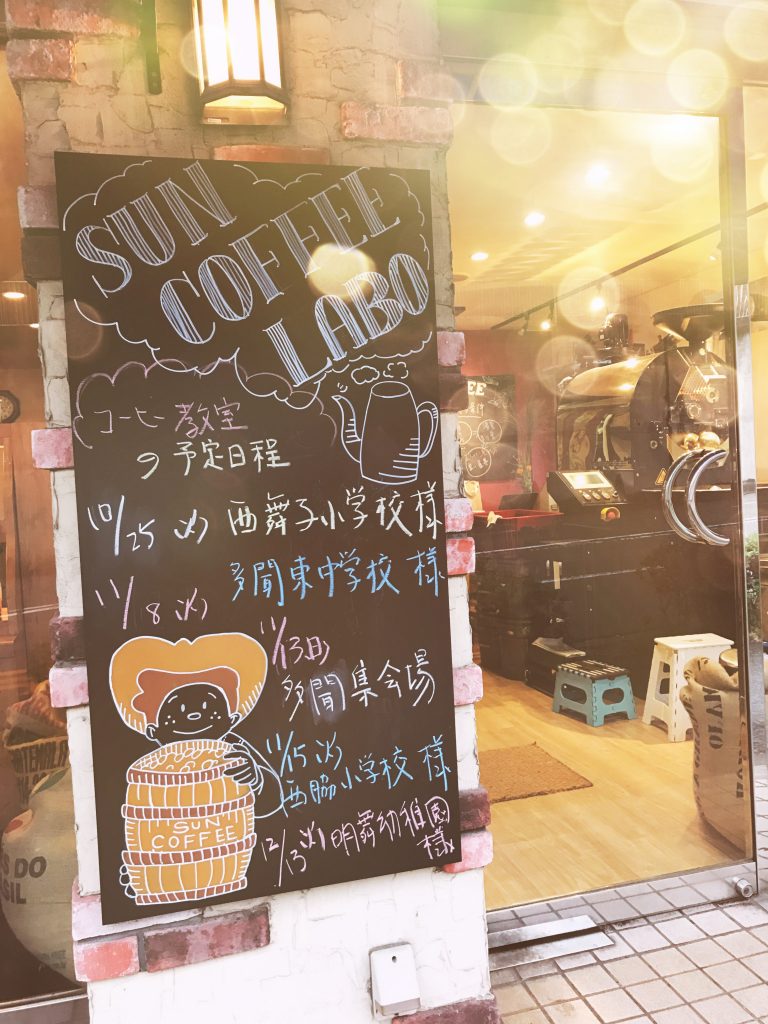 SUN
COFFEE
LABO
コーヒー教室
の予定日程
10/25 火 西舞子小学校様
11/8 火 多聞東中学校様
11/13日
多聞集会場
11/15火
西脇小学校様
12/13火 明舞幼稚園様
SUN
COFFEE